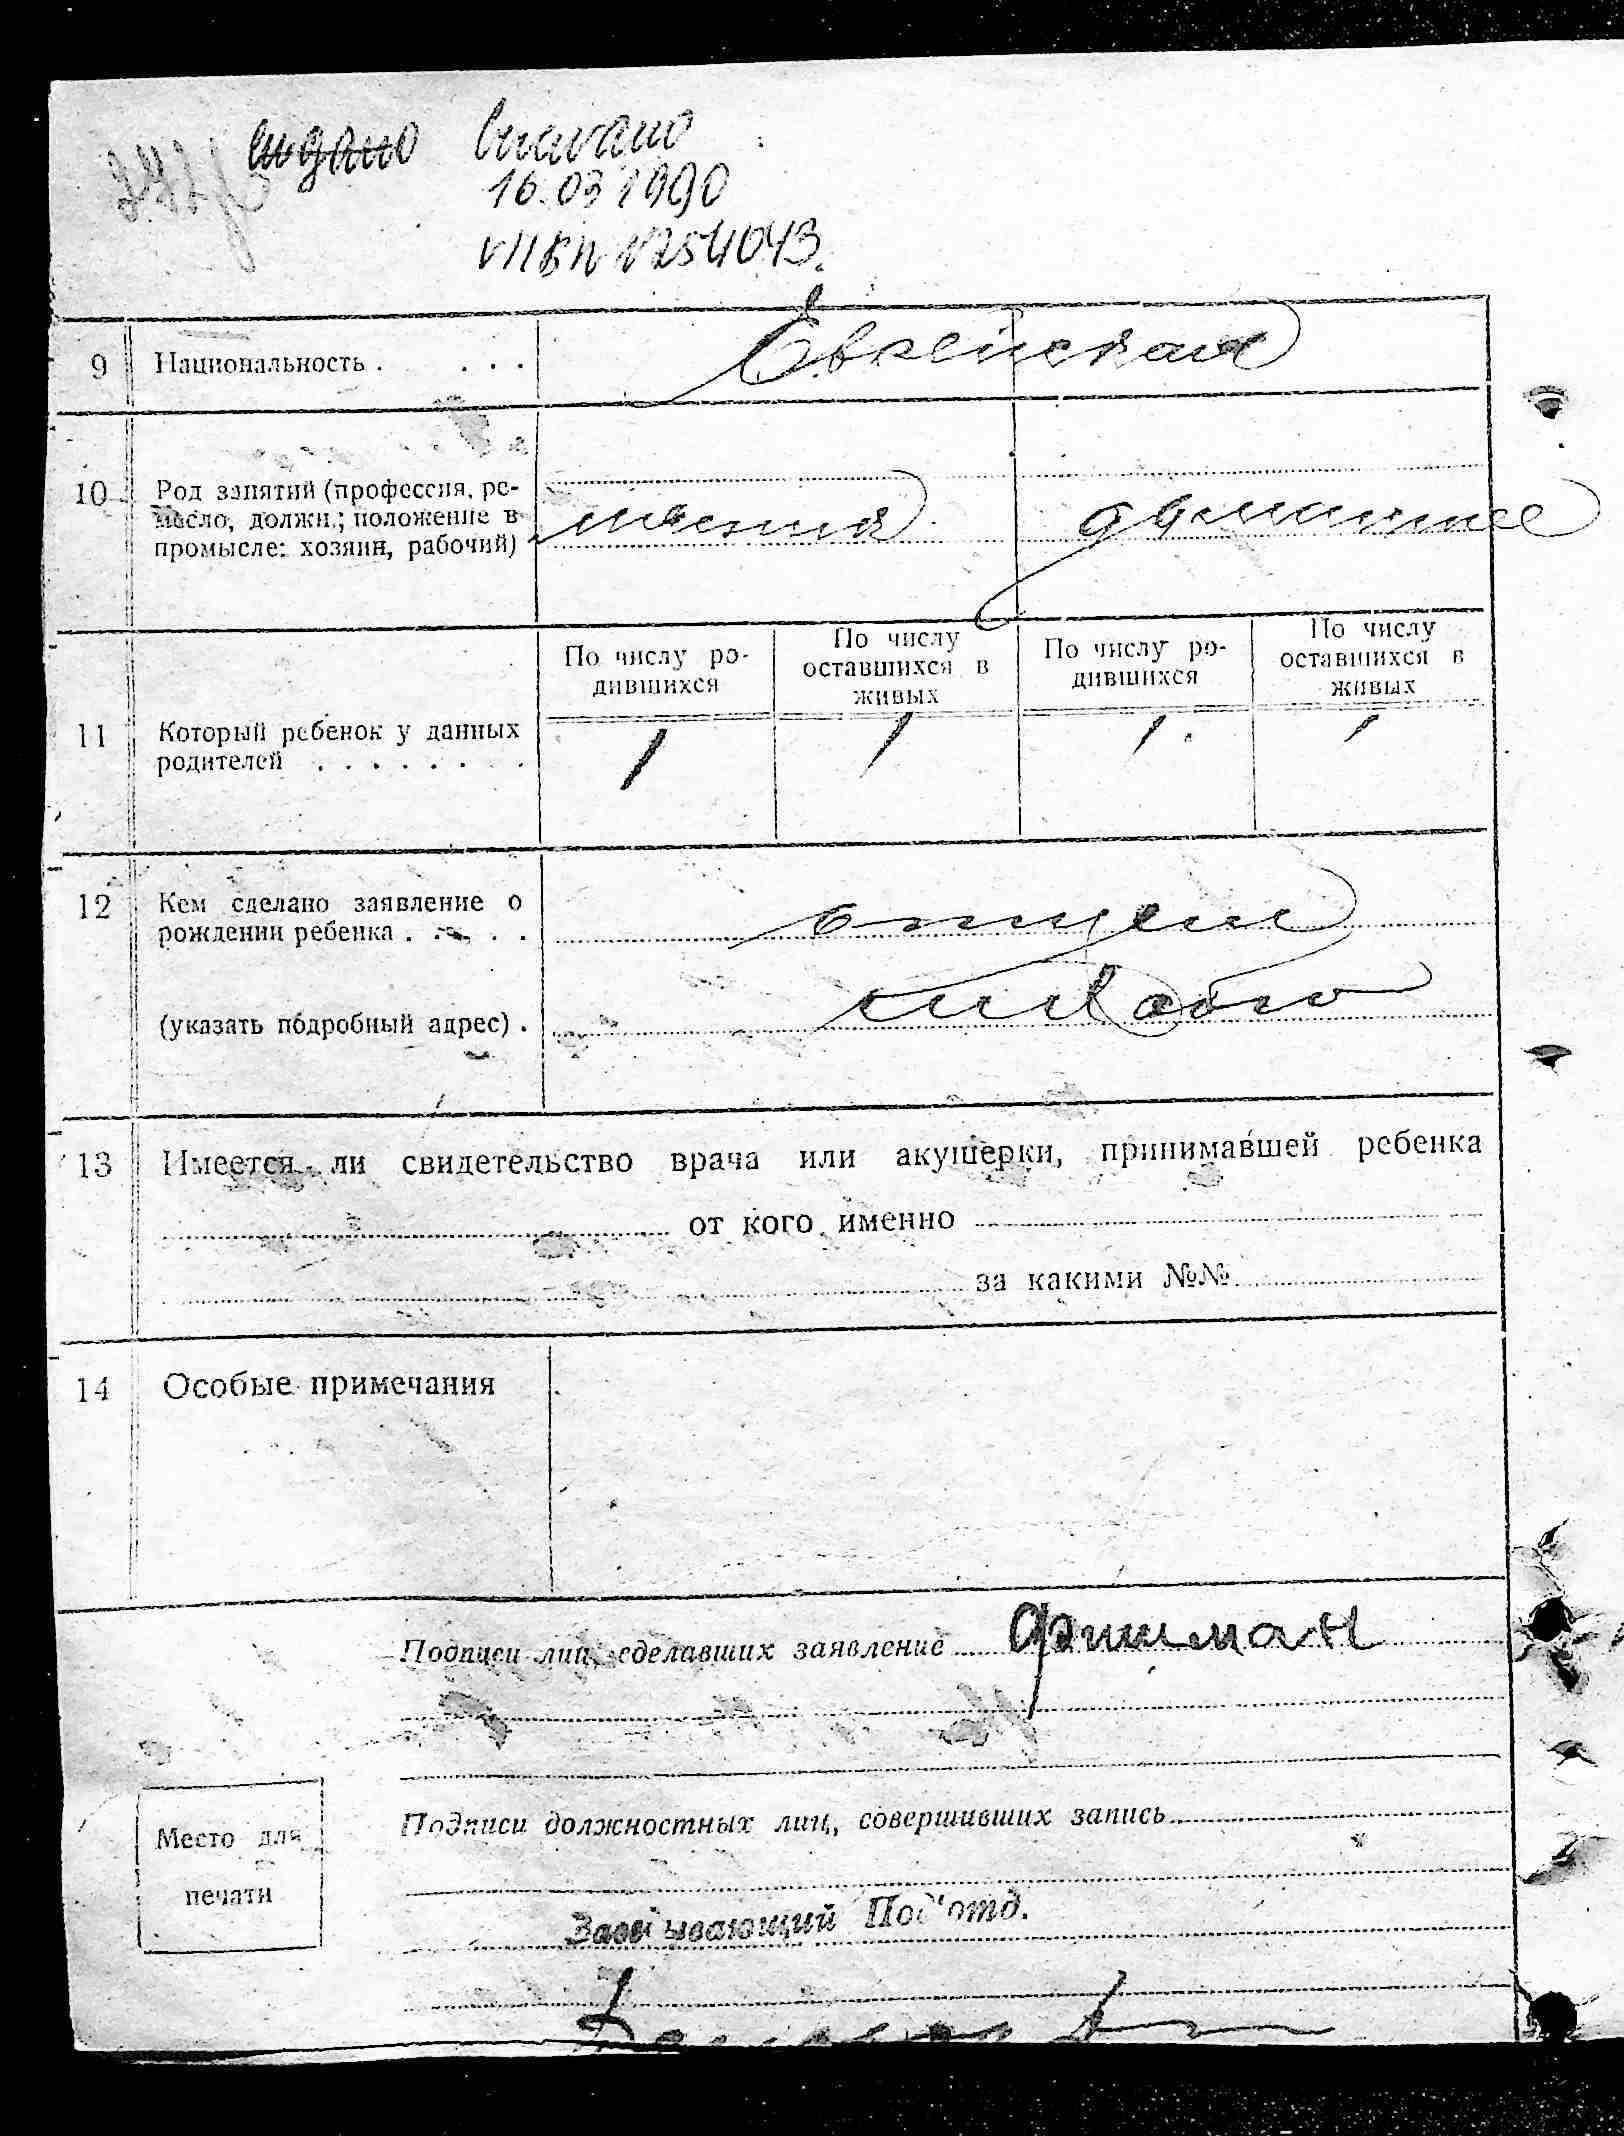 16.03 1990
VII БП №254043.
9 Национальность . . . . Еврейская
10 Род занятий (профессия, ре-
месло, должн.; положение в
промысле: хозяин, рабочий) домашнее
По числу ро-
дившихся
По числу
оставшихся в
живых
По числу ро-
дившихся
По числу
оставшихся в
живых
11 Который ребенок у данных
родителей . . . . . . . .
1 1 1 1
12 Кем сделано заявление о
рождении ребенка . . . . . отцем
(указать подробный адрес) .
13 Имеется ли свидетельство врача или акушерки, принимавшей ребенка
от кого именно
за какими №№
14 Особые примечания
Подписи лиц, сделавших заявление Фишман
Подписи должностных лиц, совершивших запись
Место для
печати
Заведывающий Под'отд.